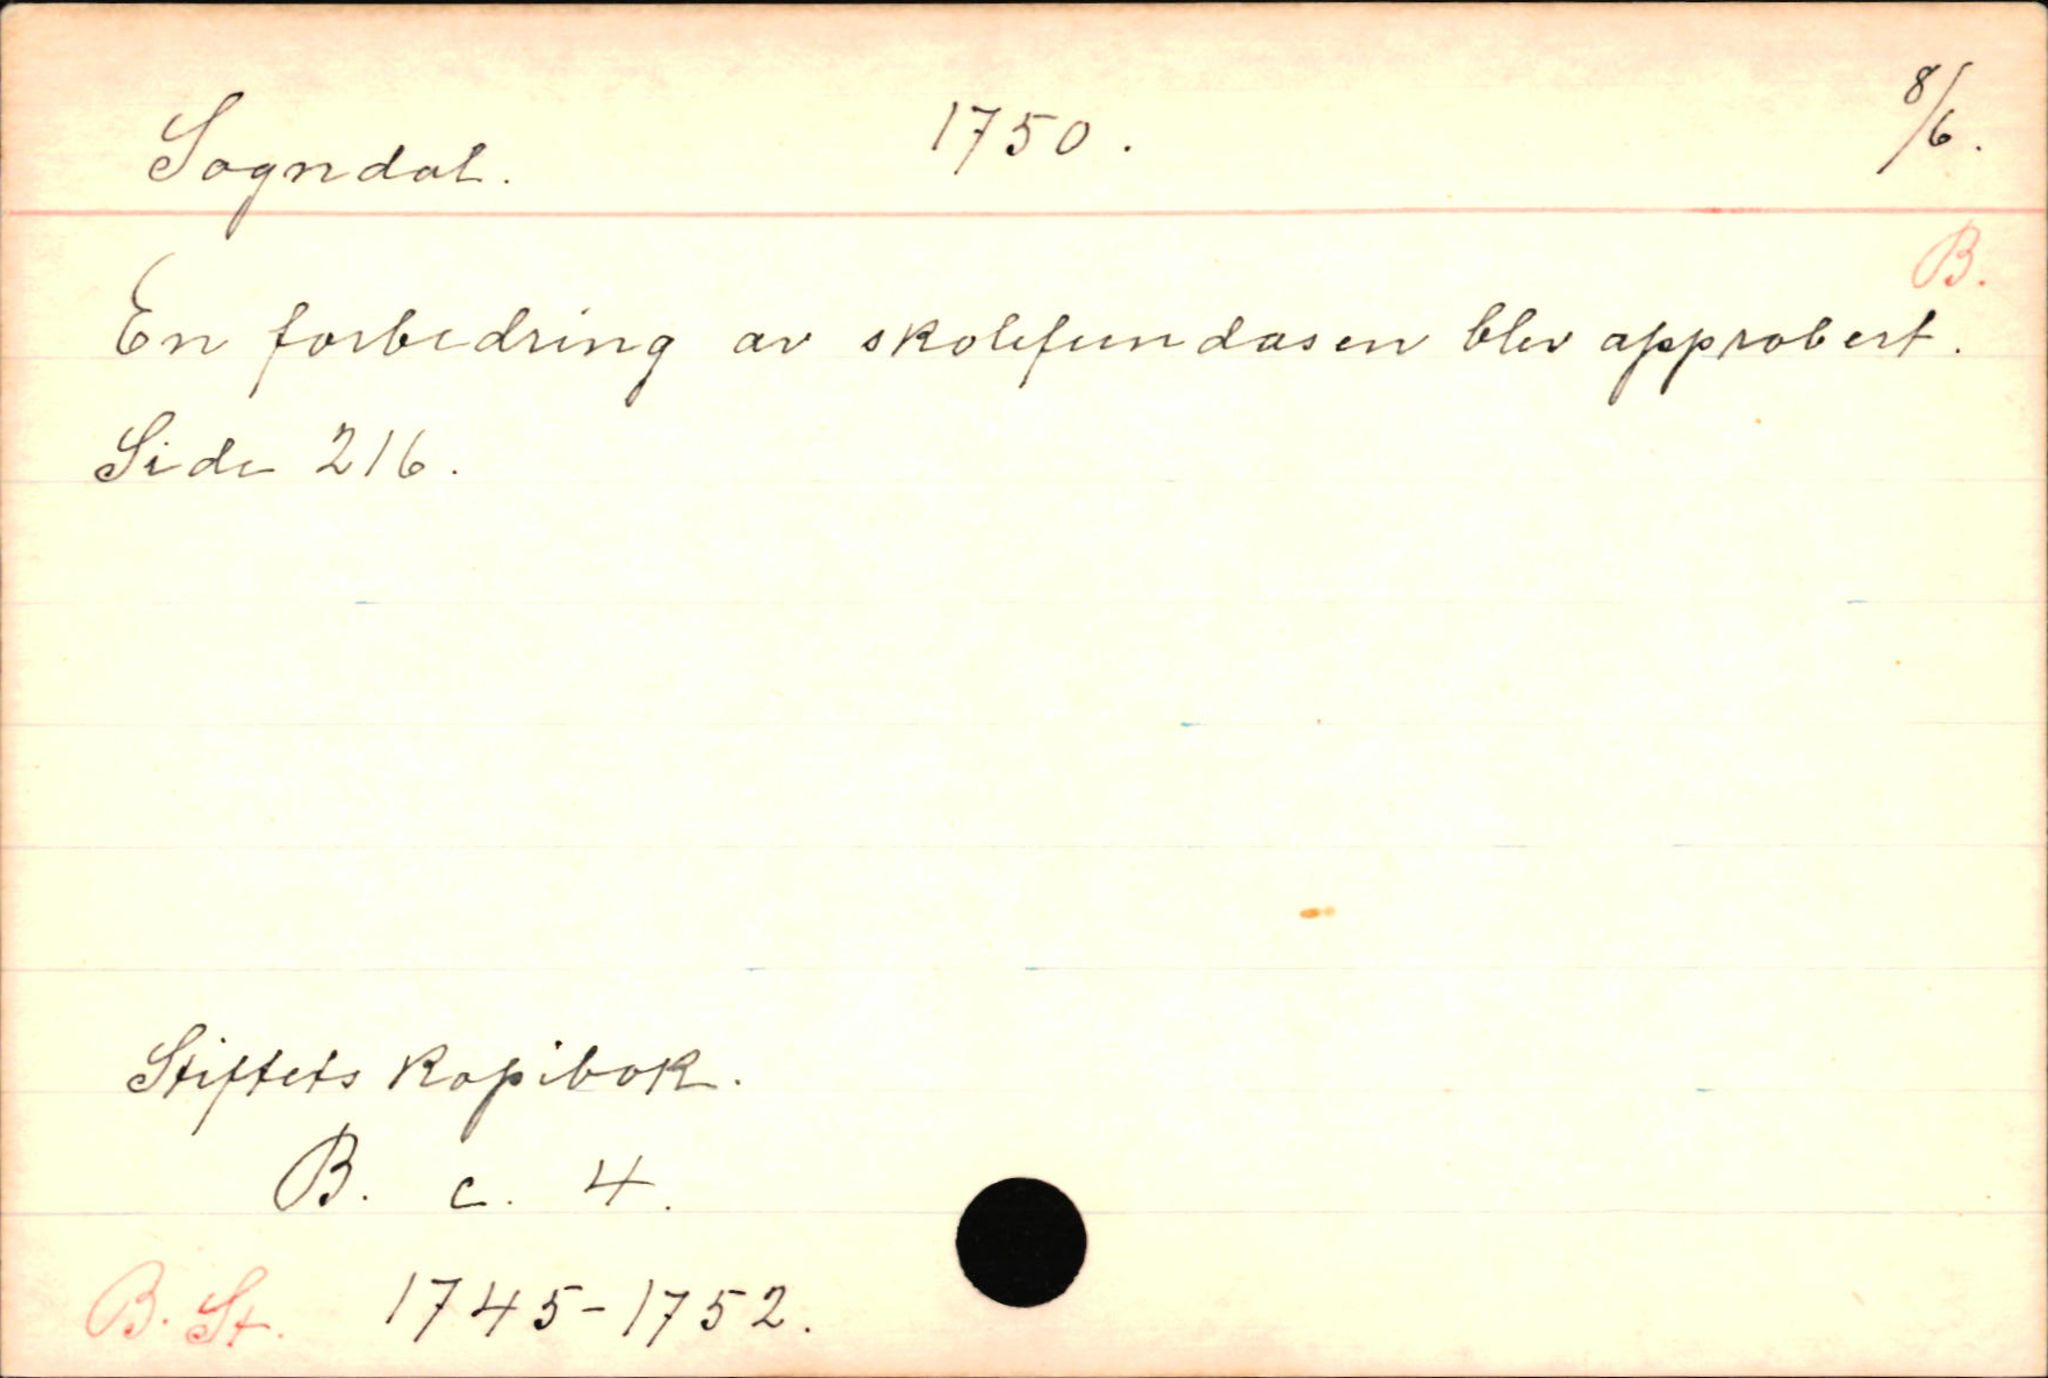 Sogndal. 1750. 8/6.
B.
En forbedring av skolefundasen blev approbert.
Side 216.
Stiftets kopibok.
B. c. 4.
B. St. 1745-1752.